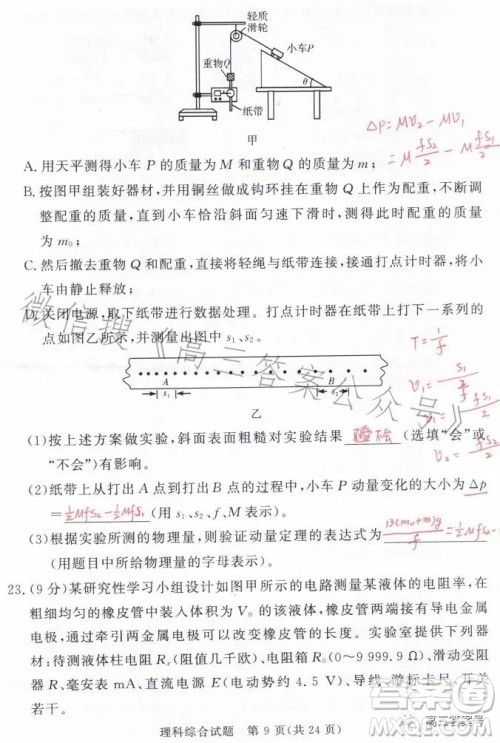 轻质
滑轮
小车P
重物Q
θ
纸带
甲
ΔP=MU₂-MU₁
=M fS₂/2 - M fS₁/2
A. 用天平测得小车 P 的质量为 M 和重物 Q 的质量为 m；
B. 按图甲组装好器材，并用铜丝做成钩环挂在重物 Q 上作为配重，不断调
整配重的质量，直到小车恰沿斜面匀速下滑时，测得此时的配重质量
为 m₀；
C. 然后撤去重物 Q 和配重，直接将轻绳与纸带连接，接通打点计时器，将小
车由静止释放；
D. 关闭电源，取下纸带进行数据处理。打点计时器在纸带上打下一系列的
点如图乙所示，并测量出图中 s₁、s₂。
T=1/f
A
B
s₁
s₂
乙
(1)按上述方案做实验，斜面表面粗糙对实验结果 不会 (选填“会”或
“不会”)有影响。
(2)纸带上从打出 A 点到打出 B 点的过程中，小车 P 动量变化的大小为 Δp
=½MfS₂-½MfS₁ (用 s₁、s₂、f、M 表示)。
(3)根据实验所测的物理量，验证动量定理的表达式为 13(m₀+m)g/f =½MfS₂-
(用题目中所给物理量的字母表示)。
23.(9 分)某研究性学习小组设计如图甲所示的电路测量某液体的电阻率，在
粗细均匀的橡皮管中装入体积为 V₀ 的该液体，橡皮管两端接有导电金属
电极，通过牵引两金属电极可以改变橡皮管的长度。实验室提供以下器
材：待测液体电阻 Rₓ(阻值几千欧)、电阻箱 R₀(0～9 999.9 Ω)、滑动变阻
器 R、毫安表 mA、直流电源(电动势约 4.5 V)、导线、游标卡尺、开关
若干。
理科综合试题 第 9 页(共 24 页)
微信搜《高三答案公众号》
高三答案号